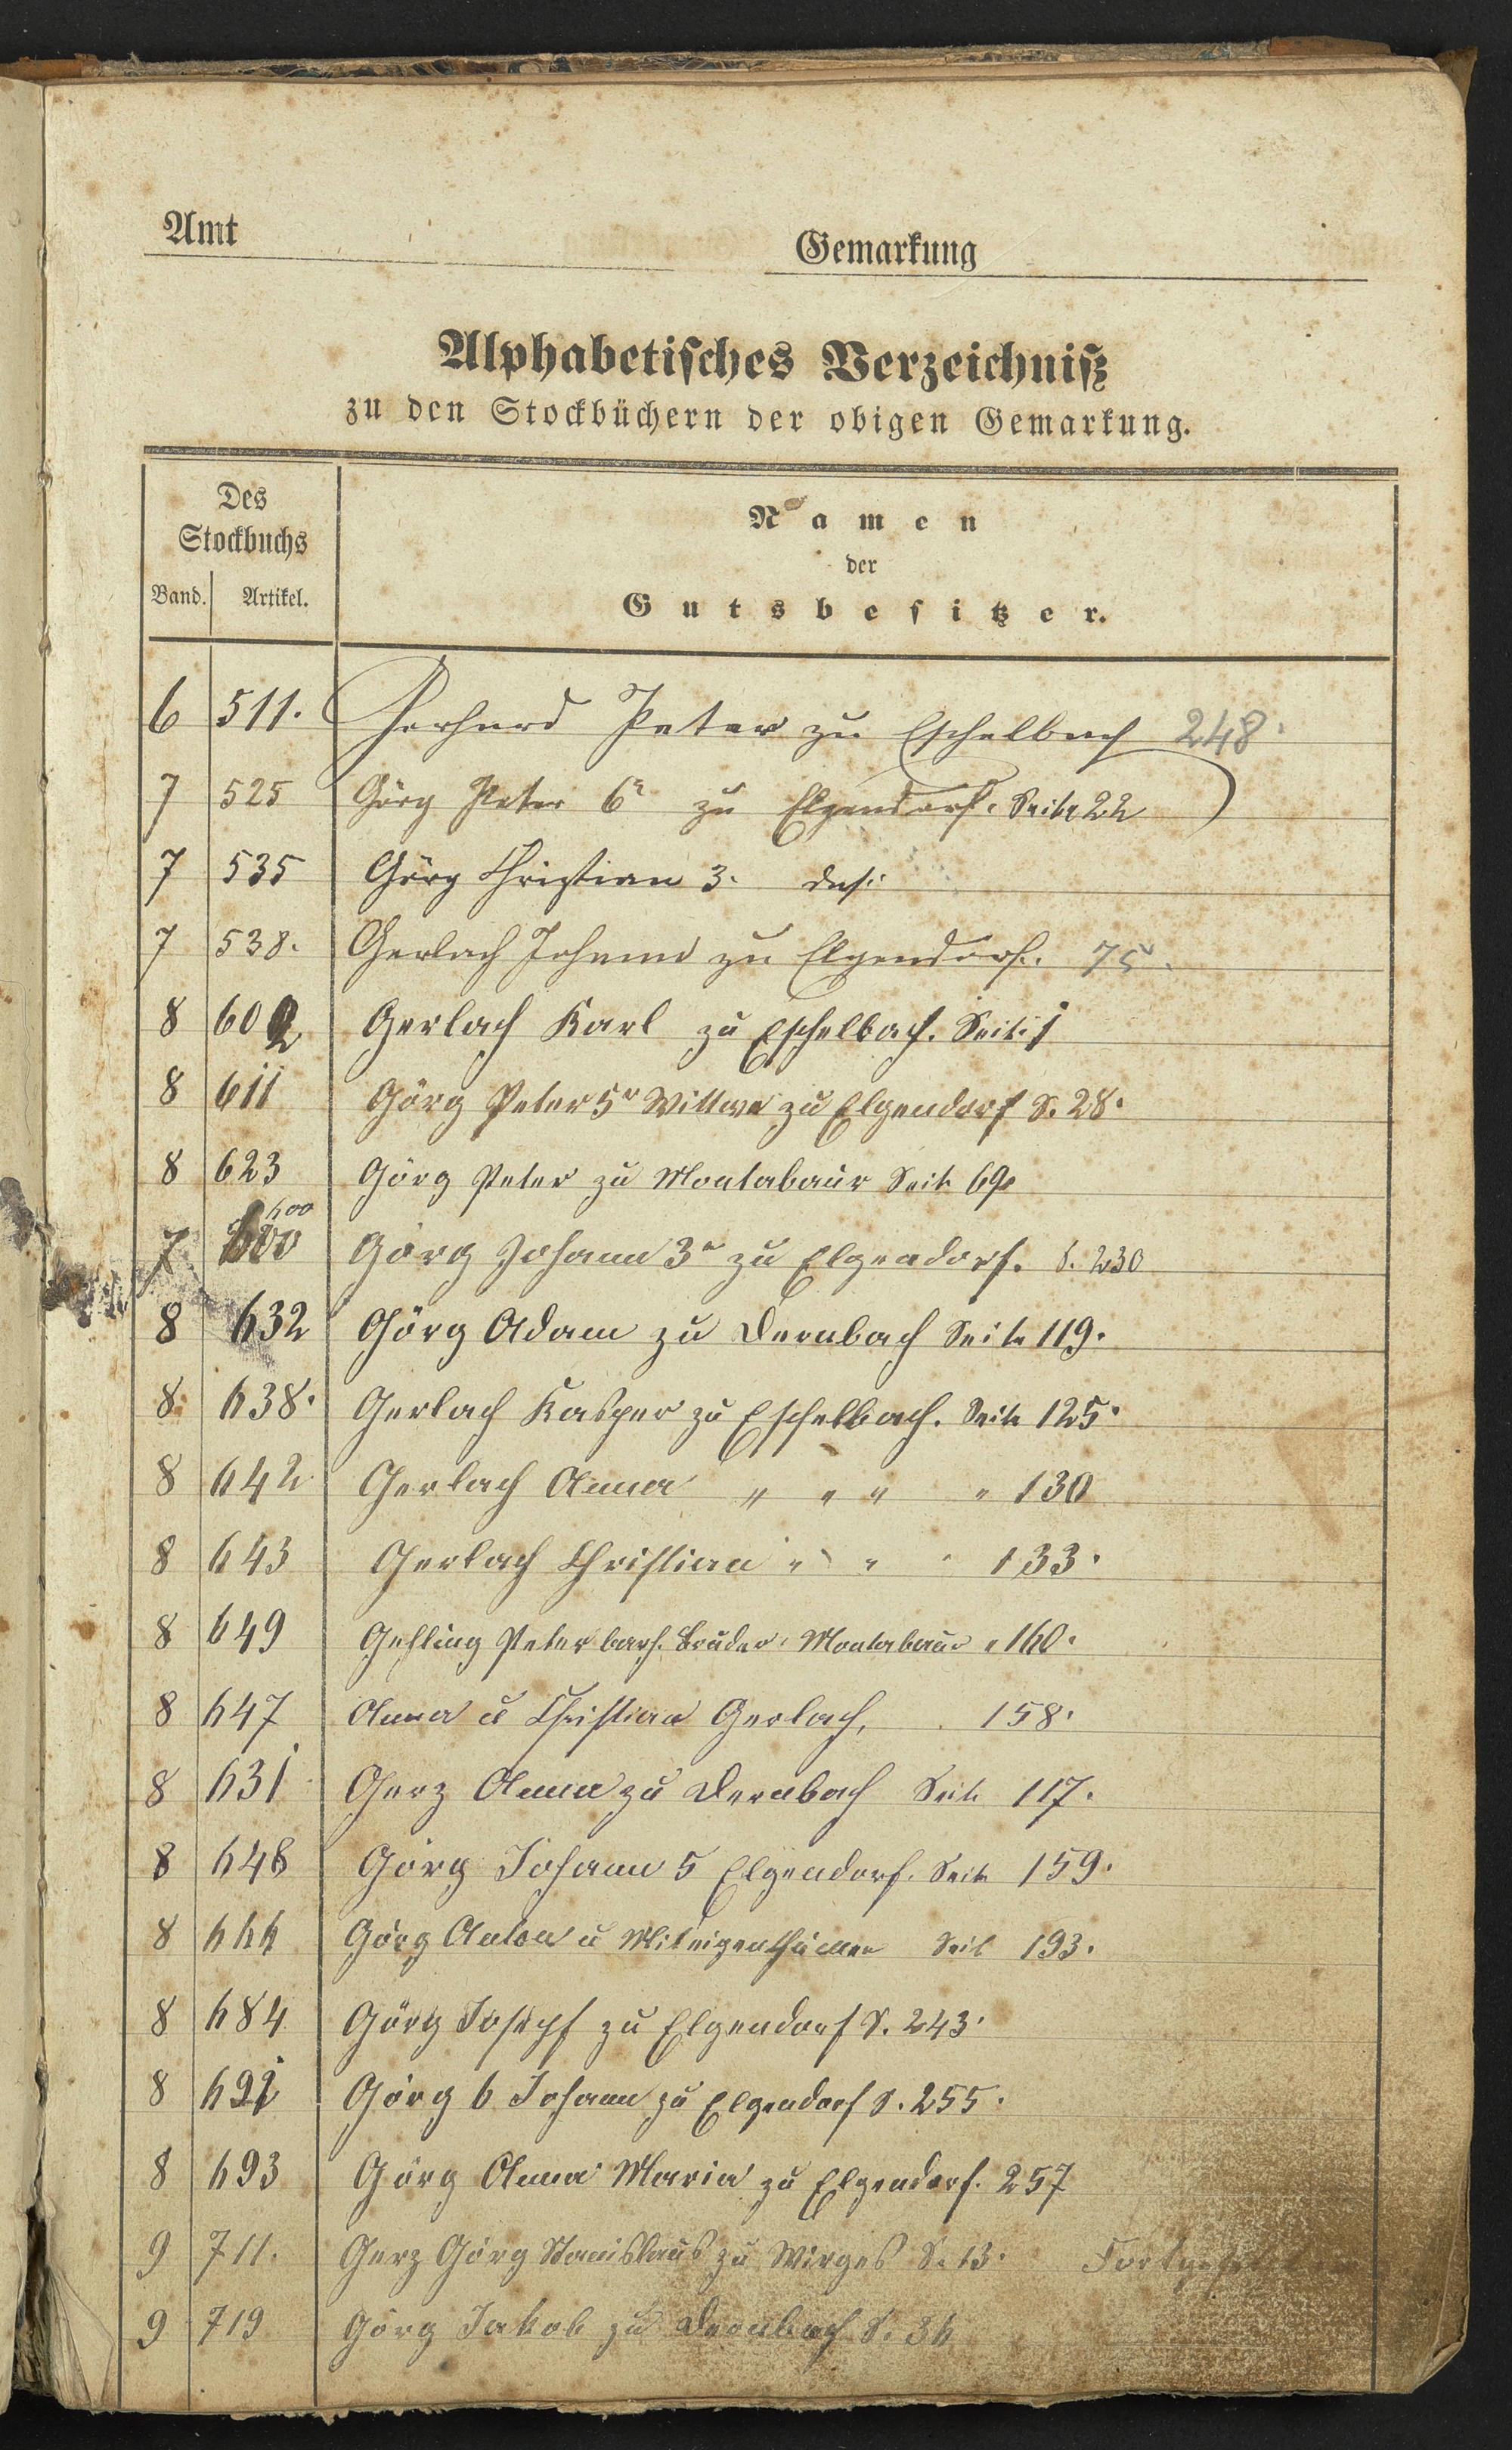 Amt
Gemarkung
Alphabetisches Verzeichniß
zu den Stockbüchern der obigen Gemarkung.
Des
Stockbuchs
Band. Artikel.
Namen
der
Gutsbesitzer.
6 511. Gerhard Peter zu Eschelbach 248.
7 525 Görg Peter 6r zu Elgendorf. Seite 22
7 535 Görg Christian 3. das.
7 538. Gerlach Johann zu Elgendorf. 75.
8 602 Gerlach Karl zu Eschelbach. Seite 1
8 611 Görg Peter 5r Wittwe zu Elgendorf S. 28.
8 623 Görg Peter zu Montabaur Seite 69
600
7 600 Görg Johann 3r zu Elgendorf. S. 230
8 632 Görg Adam zu Dernbach Seite 119.
8. 638. Gerlach Kasper zu Eschelbach. Seite 125.
8 642 Gerlach Anna " " " " 130
8 643 Gerlach Christian " " " 133.
8 649 Gehling Peter barh. Bruder, Montabaur " 160.
8 647 Anna u Christian Gerlach, 158.
8 631 Gerz Anna zu Dernbach Seite 117.
8 648 Görg Johann 5 Elgendorf. Seite 159.
8 666 Görg Anton u Miteigenthümer Seit 193.
8 684 Görg Joseph zu Elgendorf S. 243.
8 692 Görg 6 Johann zu Elgendorf S. 255.
8 693 Görg Anna Maria zu Elgendorf. 257
9 711. Gerz Görg Stanislaus zu Wirges S. 13. Fortgesetzt
9 719 Görg Jakob zu Dernbach S. 36